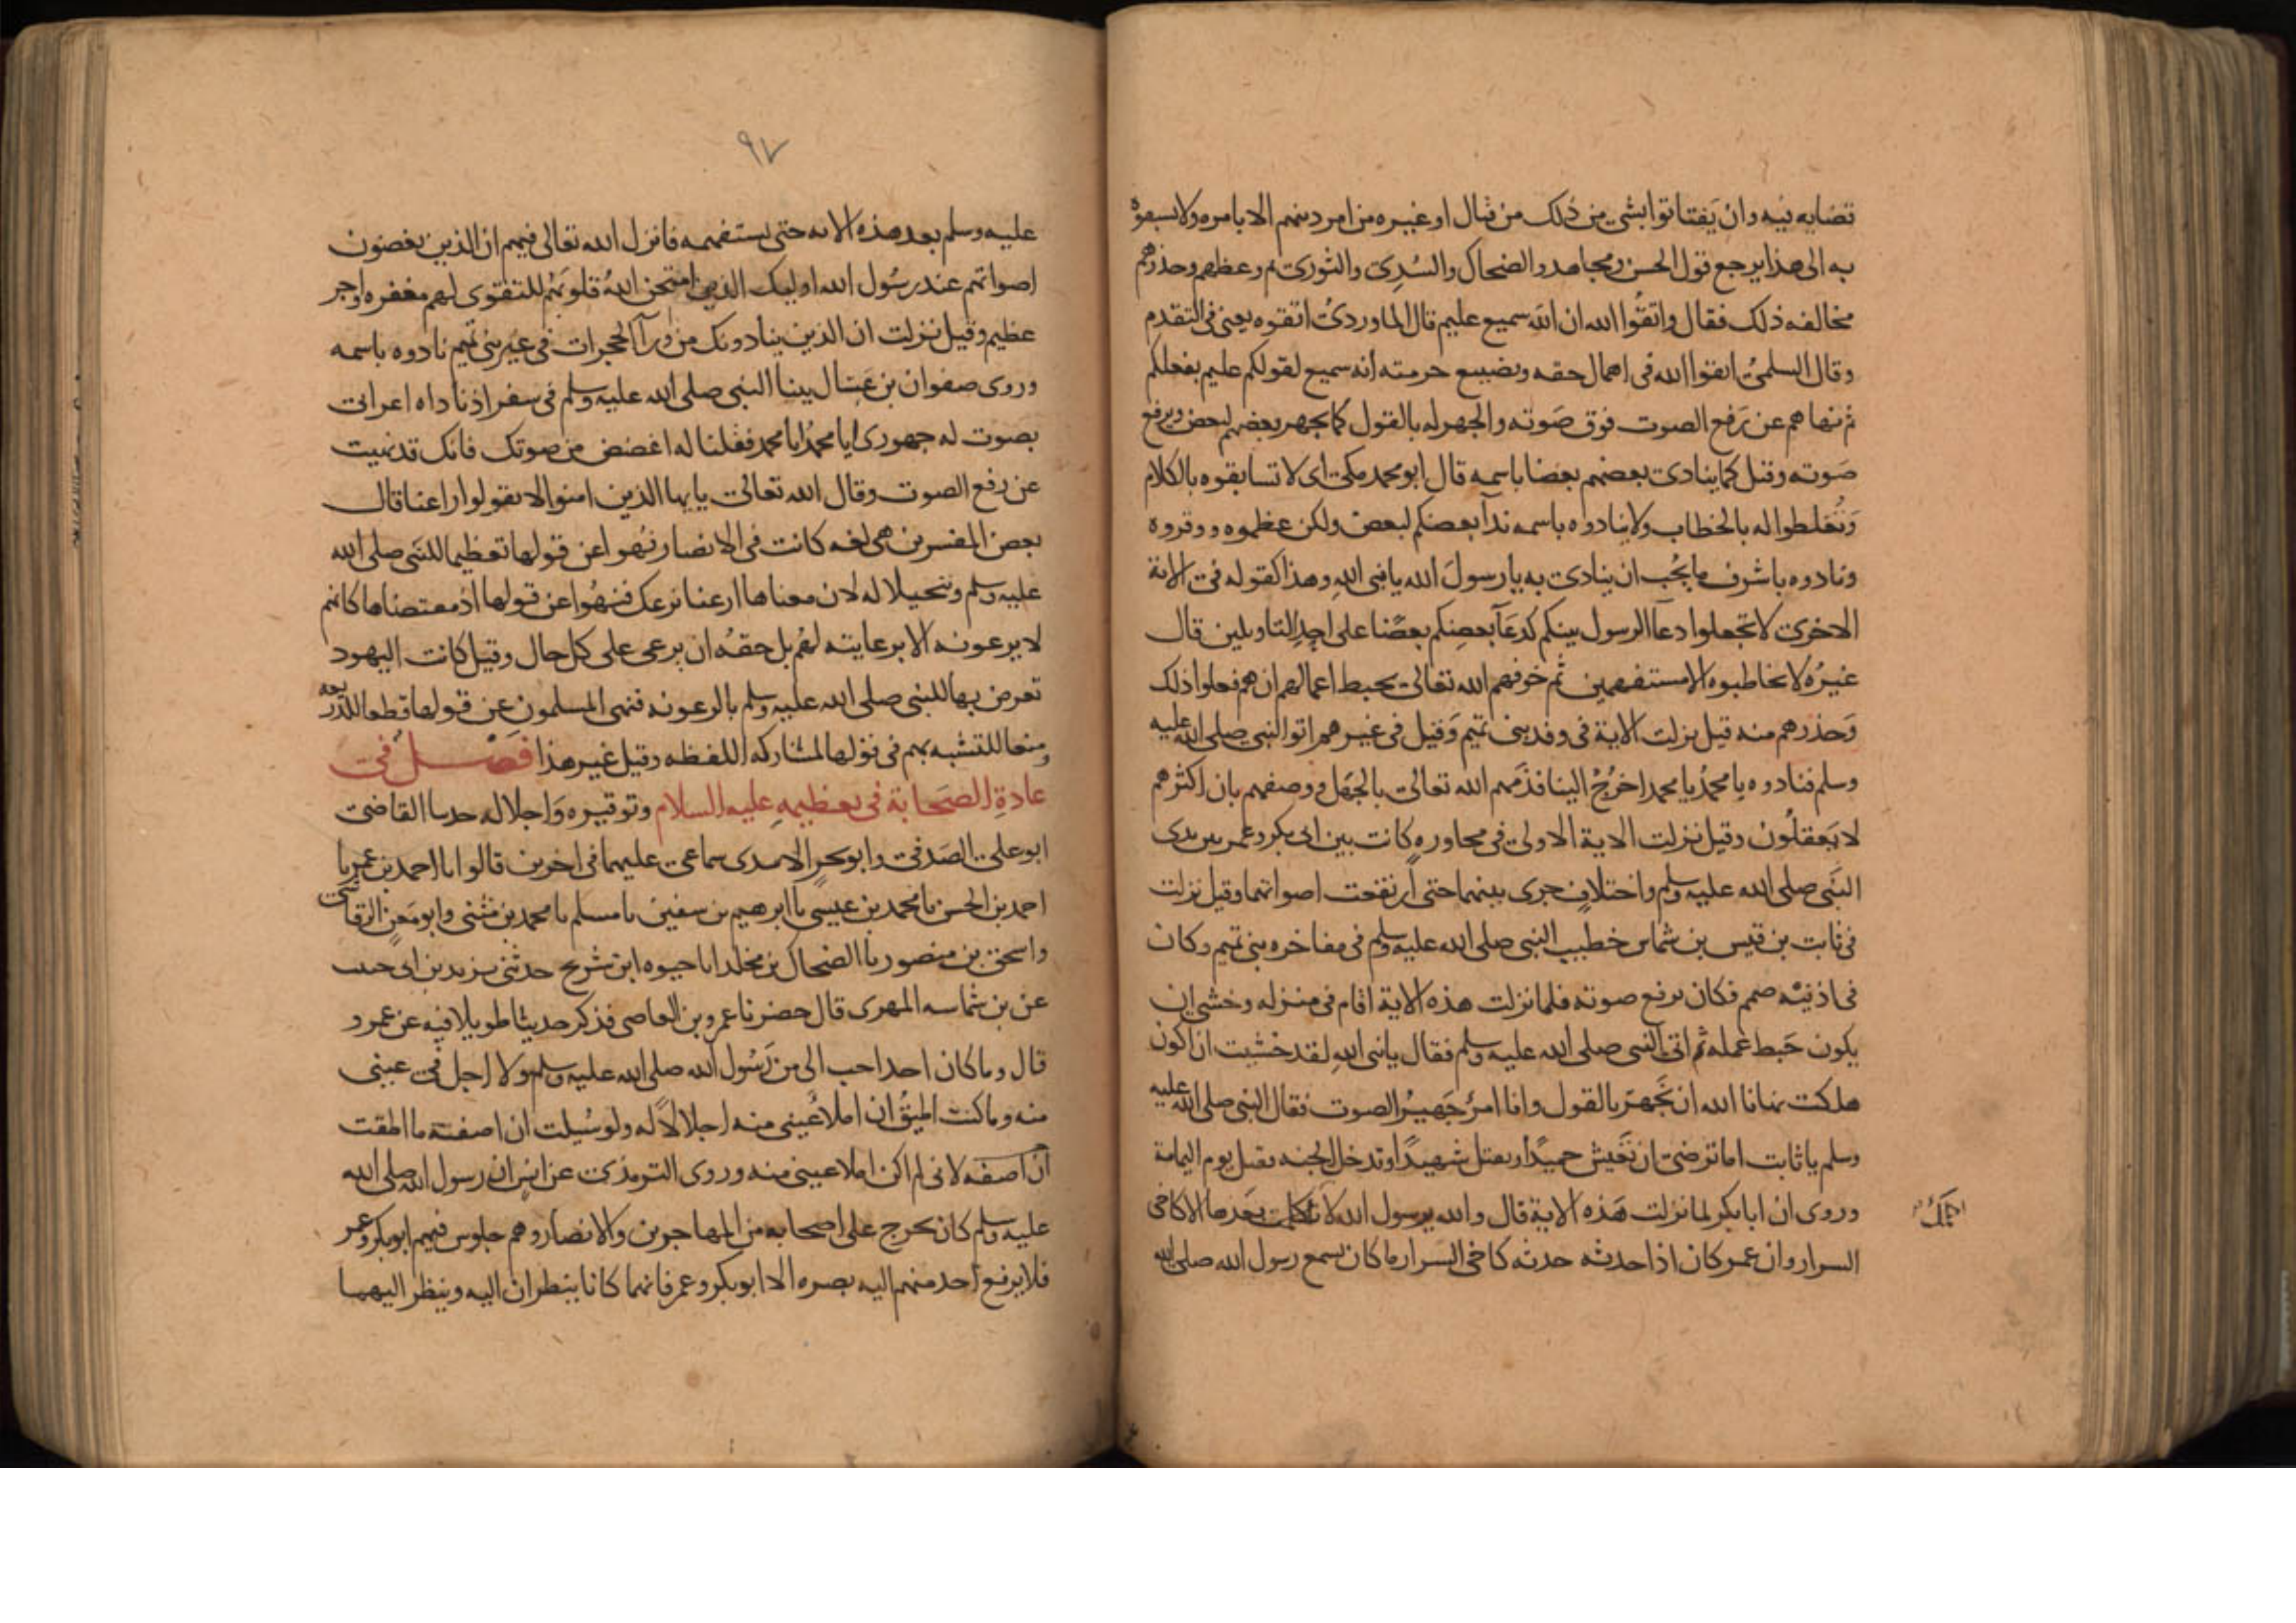 قضايه فيه وان يَفتاتوا بشي من ذلك من قتال او غيره من امر دينهم الا بامره ولا يسبقوه
به الى هذا يرجع قول الحسن ومجاهد والضحاك والسُدِى والثورى ثم وعظهم وحذرهم
مخالفه ذلك فقال واتقُوا الله ان الله سميع عليم قال الماوردىُ اتقوه يعنى فى التقدم
وقال السلمىُ اتقوا الله فى اهمال حقه وتضييع حرمته انه سميع لقولكم عليم بفعلكم
ثم نهاهم عن رَفع الصوت فوق صَوته والجهر له بالقول كما يجهر بعضهم لبعض ويرفع
صَوته وقيل كما ينادى بعضهم بعضا باسمه قال ابو محمد مكى اى لا تسابقوه بالكلام
وَتُغلطوا له بالخطاب ولا ينادوه باسمه ندآ بعضكم لبعض ولكن عظموه ووقروه
ونادوه باشرف ما يُحب ان ينادى به يا رسولَ الله يا نبى اللهِ وهذا كقوله فى الاية
الاخرى لا تجعلوا دعآ الرسول بينكم كدعَآ بعضِكم بعضًا على احدِ التاويلين قال
غيرُه لا تخاطبوه الا مستفهمين ثم خوفهم الله تعالى بحبط اعمالهم ان هم فعلوا ذلك
وَحذرهم منه قيل نزلت الاية فى وفد بنى تميم وَقيل فى غيرهم اتوا النبى صلى الله عليه
وسلم فنادوه يا محمدُ يا محمد اخرُجْ الينا فذَمهم الله تعالى بالجَهل ووصفهم بان اكثرهم
لا يَعقلُون وقيل نزلت الاية الاولى فى محاورهٍ كانت بين ابى بكر وعمر بين يدى
النَبى صلى الله عليه وسلم واختلافٍ جرى بينهما حتى ارتفعت اصواتهما وقيل نزلت
فى ثابت بن قيس بن شماس خطيب النبى صلى الله عليه وسلم فى مفاخره بنى تميم وكان
فى اذنيْه صمم فكان يرفع صوته فلما نزلت هذه الاية اقام فى منزله وخشى ان
يكون حَبط عَمله ثم اتى النبى صلى الله عليه وسلم فقال يا نبى اللهِ لقد خشيت ان اكون
هلكت نهانا الله ان نَجهرَ بالقول وانا امرُ جَهيرُ الصوت فقال النبى صلى الله عليه
وسلم يا ثابت اما ترضى ان تَعيش حميدًا وتقتل شهيدًا وتدخل الجنه فقتل يوم اليمامة
وروى ان ابا بكر لما نزلت هَذه الاية قال والله يرسول الله لا اكلمك بعَدها الا كاخى
اكلمكَ
السرار وان عمر كان اذا حدثه حدثه كاخى السرار ما كان يسمع رسول الله صلى الله
٩٧
عليه وسلم بعد هذه الايه حتى يستفهمه فانزل الله تعالى فيهم ان الذين يغضون
اصواتهم عند رسُول الله اوليك الذين امتحن اللهُ قلوبَهُم للتقوى لهم مغفره واجر
عظيم وقيل نزلت ان الذين ينادونك من ورآ الحجرات فى غير بنى تميم نادوه باسمه
وروى صفوان بن عَسَال بينا النبى صلى الله عليه وسلم فى سفر اذ ناداه اعرابى
بصوت له جهورى ايا محمدُ ايا محمد فقلنا له اغضض من صوتك فانك قد نهيت
عن رفع الصوت وقال الله تعالى يايها الذين امنوا لا تقولوا راعنا قال
بعض المفسرين هى لغه كانت فى الانصار ونُهوا عن قولها تعظيما للنَبى صلى الله
عليه وسلم وتبجيلا له لان معناها ارعنا نرعك فنهُوا عن قولها اذ مقتضاها كانهم
لا يرعونه الا برعايته لهُم بل حقهُ ان يرعى على كل حال وقيل كانت اليهود
تعرض بها للنبى صلى الله عليه وسلم بالرعونه فنهى المسلمون عن قولها قطعا للذريعه
ومنعا للتشبه بهم فى قولها لمشاركه اللفظه وقيل غير هذا فَصْــل فى
عادةِ الصَحَابة فى تعظيمهِ عليه السلام وتوقيره وَاجلاله حدثنا القاضى
ابو على الصَدفى وابو بحرٍ الاسدى سماعى عليهما فى اخرين قالوا انا احمد بن عمر نا
احمد بن الحسن نا محمد بن عيسى نا ابرهيم بن سفين نا مسلم نا محمد بن مثنى وابو مَعنٍ الرقاشى
واسحق بن منصور نا الضحاك بن مخلد انا حيوه ابن شريح حدثنى يزيد بن ابى حبيب
عن بن شماسه المهرى قال حضرنا عمرو بن العاصى فذكر حديثا طويلا فيه عن عمرو
قال وما كان احد احب الى من رَسُول الله صلى الله عليه وسلم ولا اجل فى عينى
منه وما كنت اطيقُ ان املا عُينى منه اجلالاً له ولو سُيلت ان اصفهَ ما اطقت
ان اصفه لانى لم اكن املا عينى منه وروى الترمذى عن انسٍ ان رسول الله صلى الله
عليه وسلم كان يخرج على اصحابه من المهاجرين والانصار وهم جلوس فيهم ابو بكر وعمر
فلا يرفع احد منهم اليه بصره الا ابو بكر وعمر فانهما كانا ينظران اليه وينظر اليهما